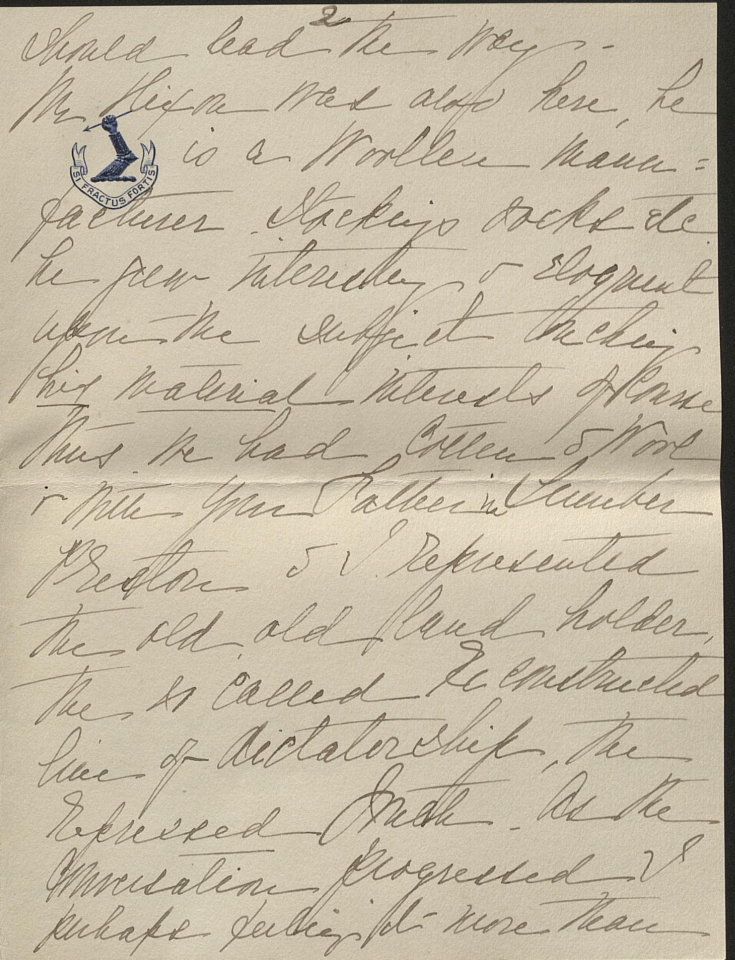 2
should lead the way -
Mr Hixon was also here, he
is a Woollen manu=
SI FRACTUS FORTIS
facturer. Stockings socks etc
he grew interesting & eloquent
upon the subject touching
his material interests of Course
thus we had Cotton & Wool
& with your Father in Lumber
Preston & I represented
the old, old land holder,
the so called Reconstructed
line of dictatorship, the
Repressed South. As the
Conversation progressed I
perhaps feeling it more than